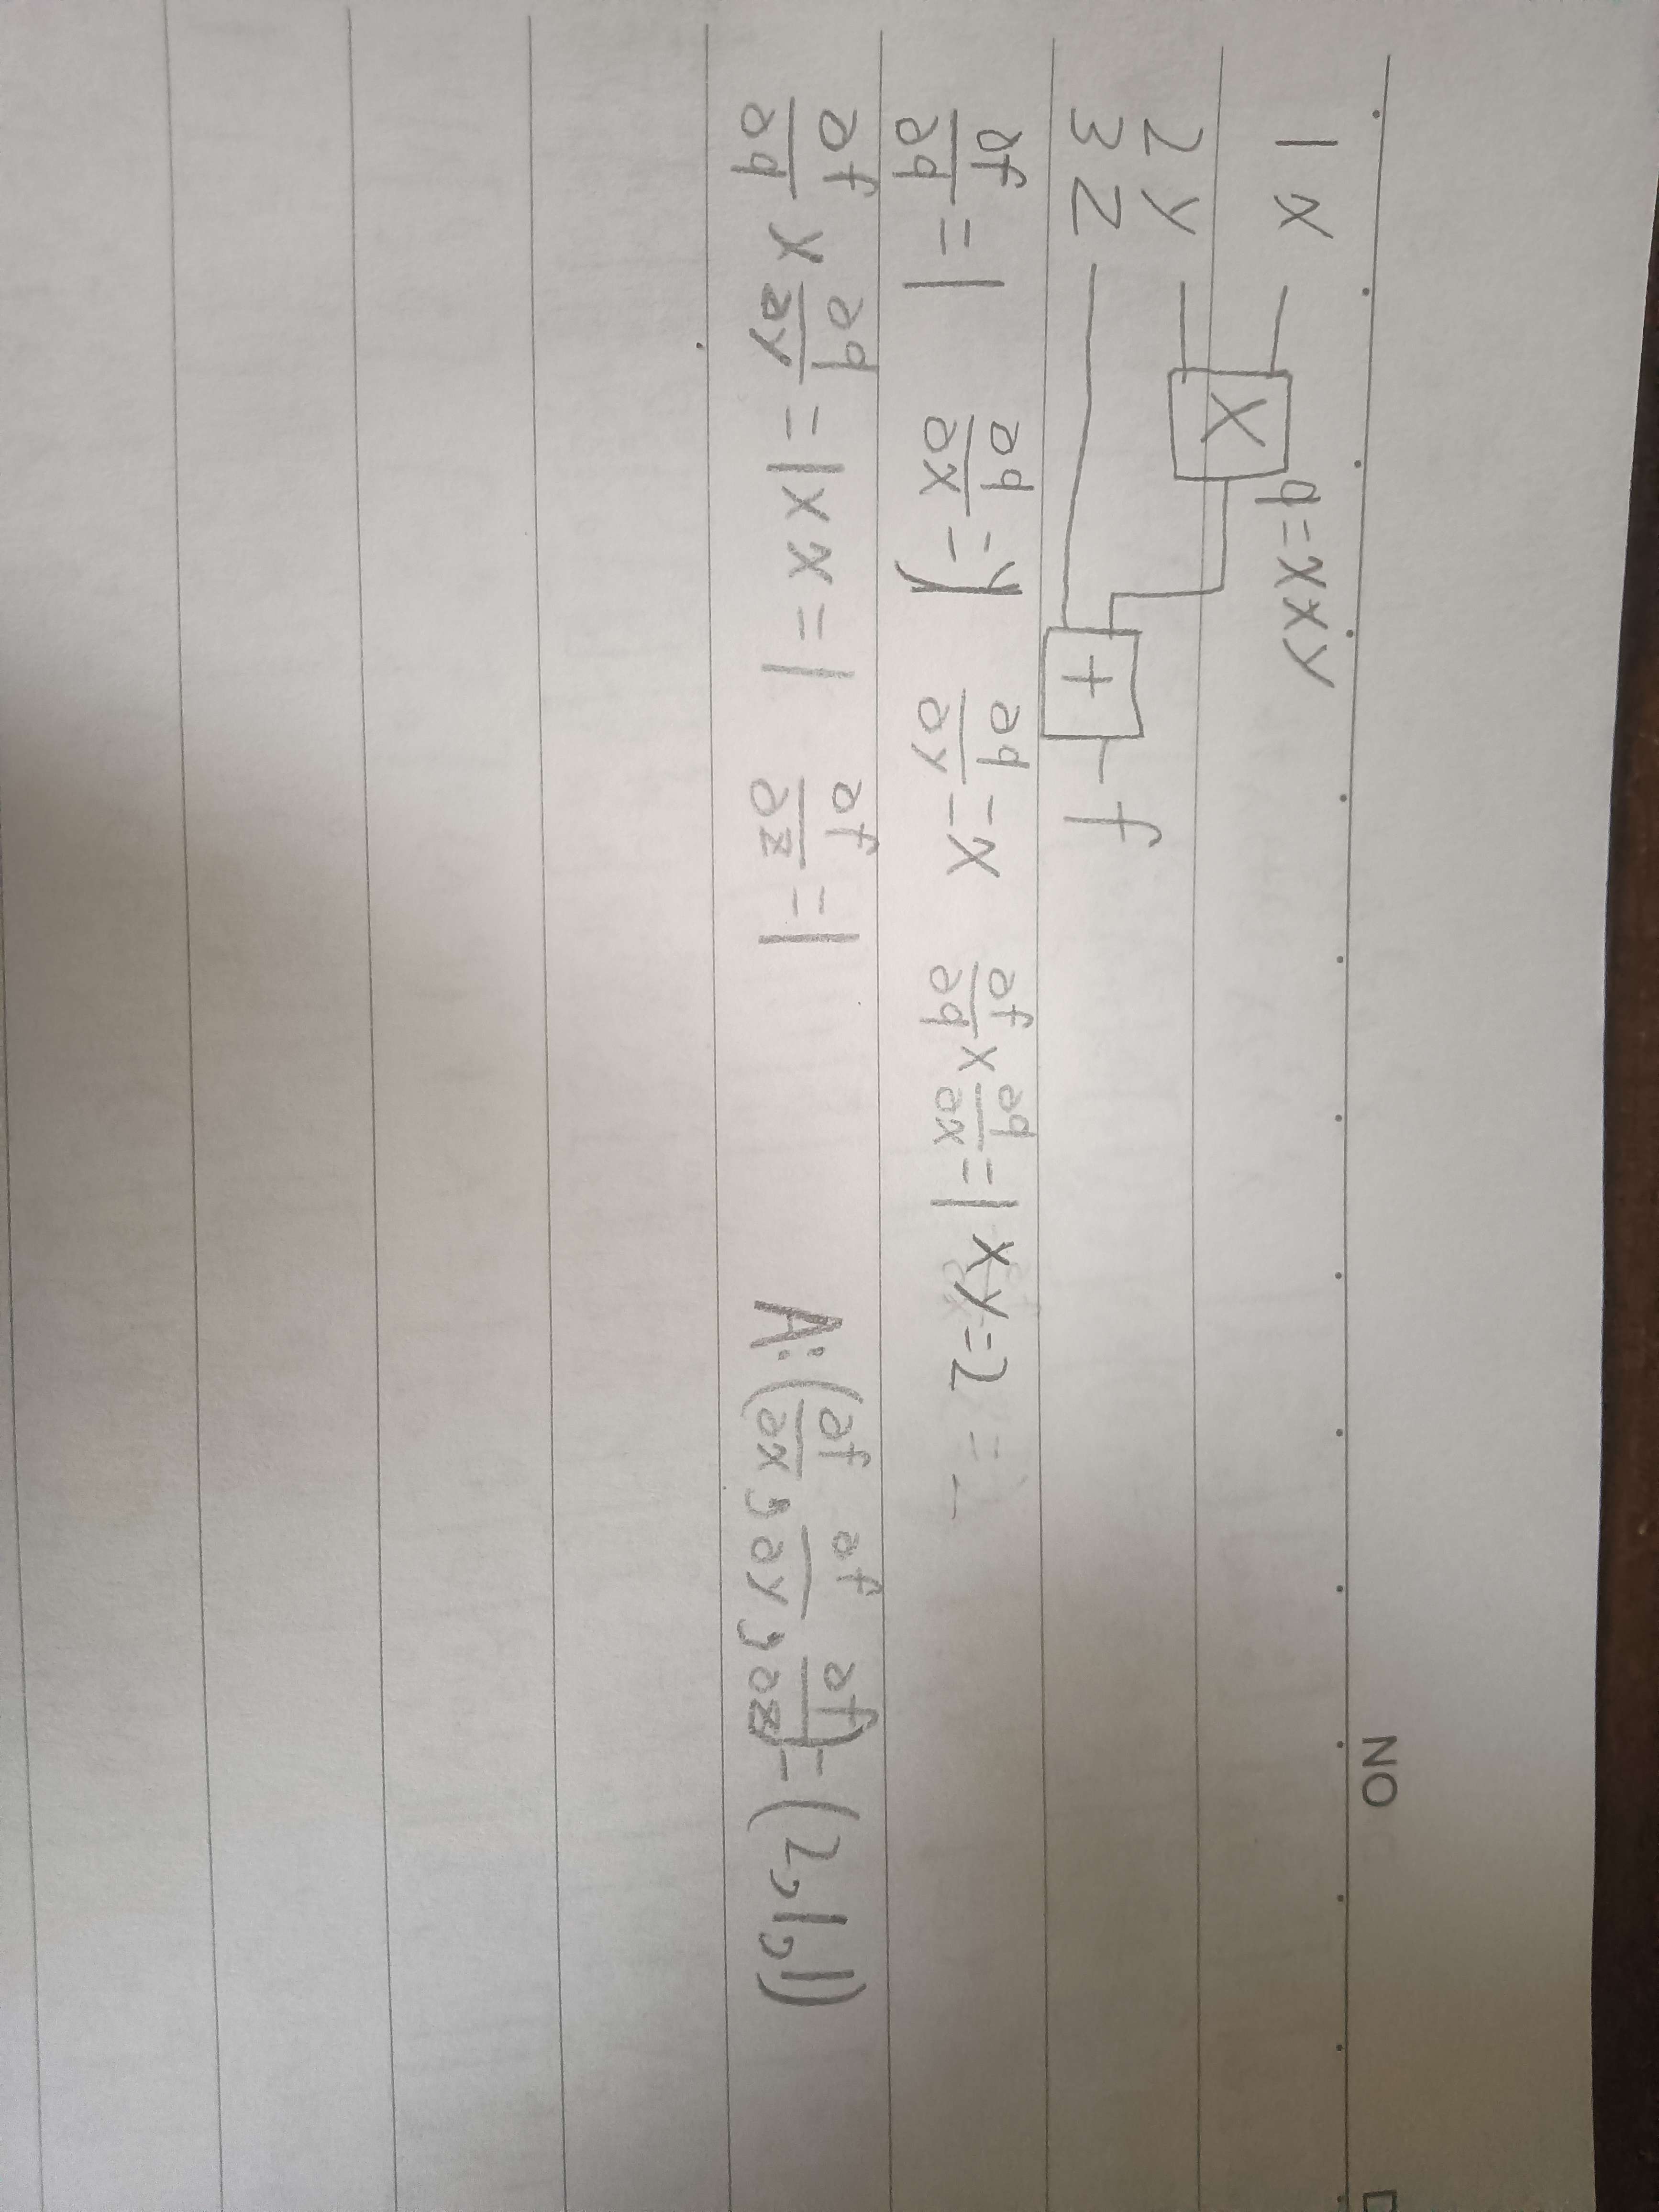 NO
1 x
q=x×y
×
2 y
3 z
+
f
∂f/∂q=1 ∂q/∂x=y ∂q/∂y=x ∂f/∂q×∂q/∂x=1×y=2
∂f/∂q×∂q/∂y=1×x=1 ∂f/∂z=1 A:(∂f/∂x,∂f/∂y,∂f/∂z)=(2,1,1)